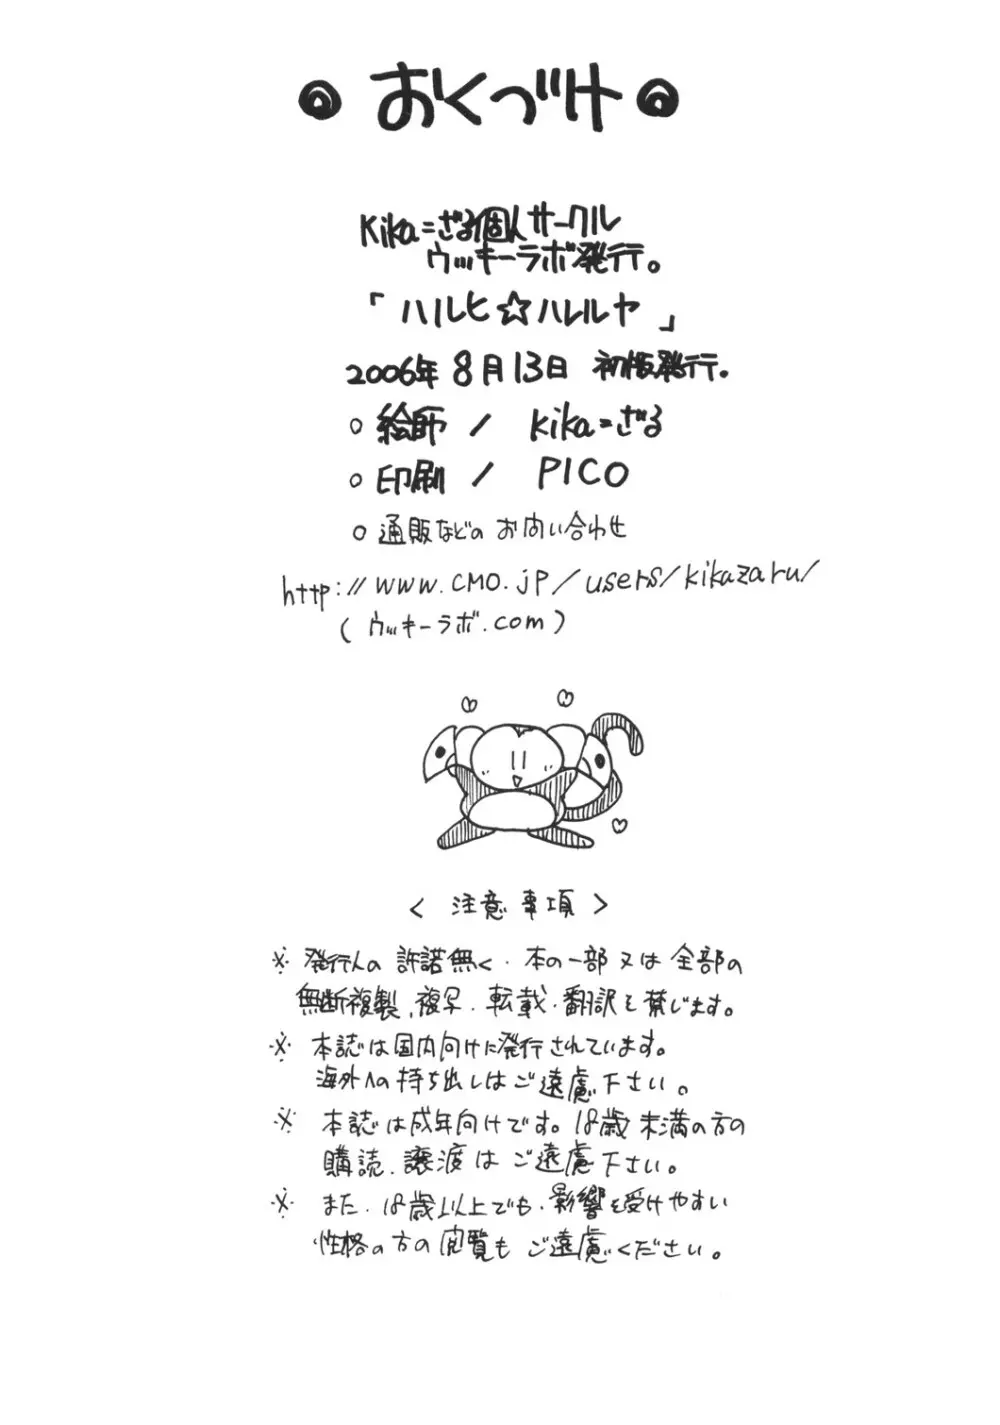 おくづけ
Kika=ざる個人サークル
ウッキーラボ発行。
「ハルヒ☆ハレルヤ」
2006年8月13日 初版発行。
○絵師 / Kika=ざる
○印刷 / PICO
○通販などのお問い合わせ
http://www.cmo.jp/users/kikazaru/
(ウッキーラボ.com)
〈 注意事項 〉
※発行人の許諾無く、本の一部又は全部の
無断複製、複写、転載、翻訳を禁じます。
※本誌は国内向けに発行されています。
海外への持ち出しはご遠慮下さい。
※本誌は成年向けです。18歳未満の方の
購読、譲渡はご遠慮下さい。
※また、18歳以上でも、影響を受けやすい
性格の方の閲覧もご遠慮ください。